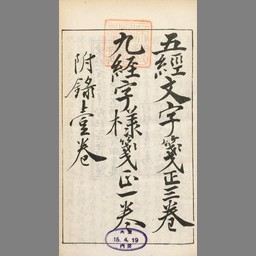 五經文字箋正三卷
九經字樣箋正一卷
附錄壹卷
15.4.19